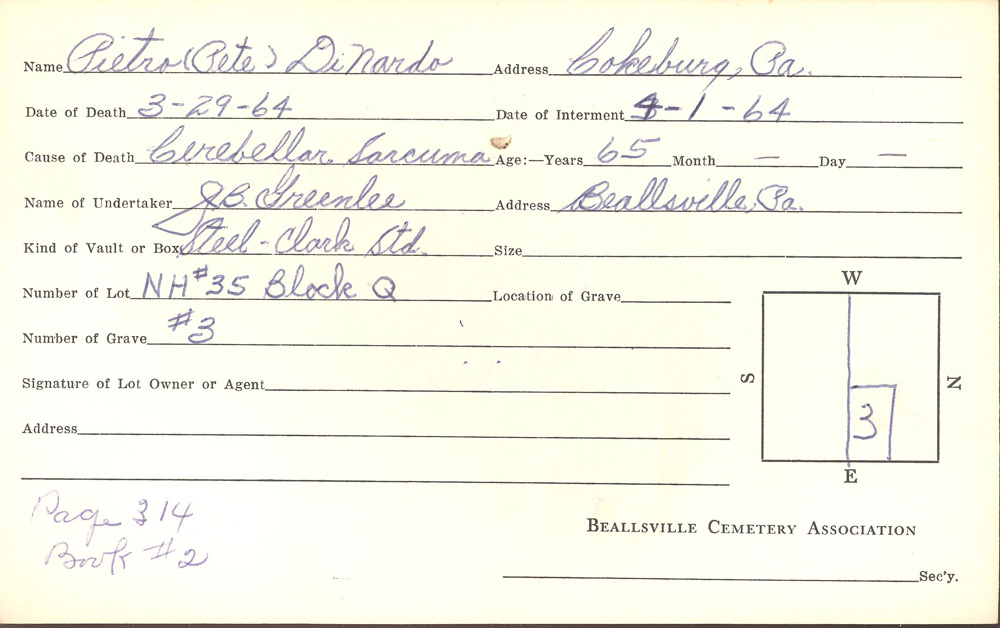 Name Pietro (Pete) DiNardo Address Cokeburg, Pa.
Date of Death 3-29-64 Date of Interment 4-1-64
Cause of Death Cerebellar Sarcuma Age:—Years 65 Month — Day —
Name of Undertaker J.B. Greenlee Address Beallsville, Pa.
Kind of Vault or Box Steel-Clark Std. Size
Number of Lot NH #35 Block Q Location of Grave
Number of Grave #3
Signature of Lot Owner or Agent
Address
W
S
N
3
E
Page 314
Book #2
BEALLSVILLE CEMETERY ASSOCIATION
Sec'y.